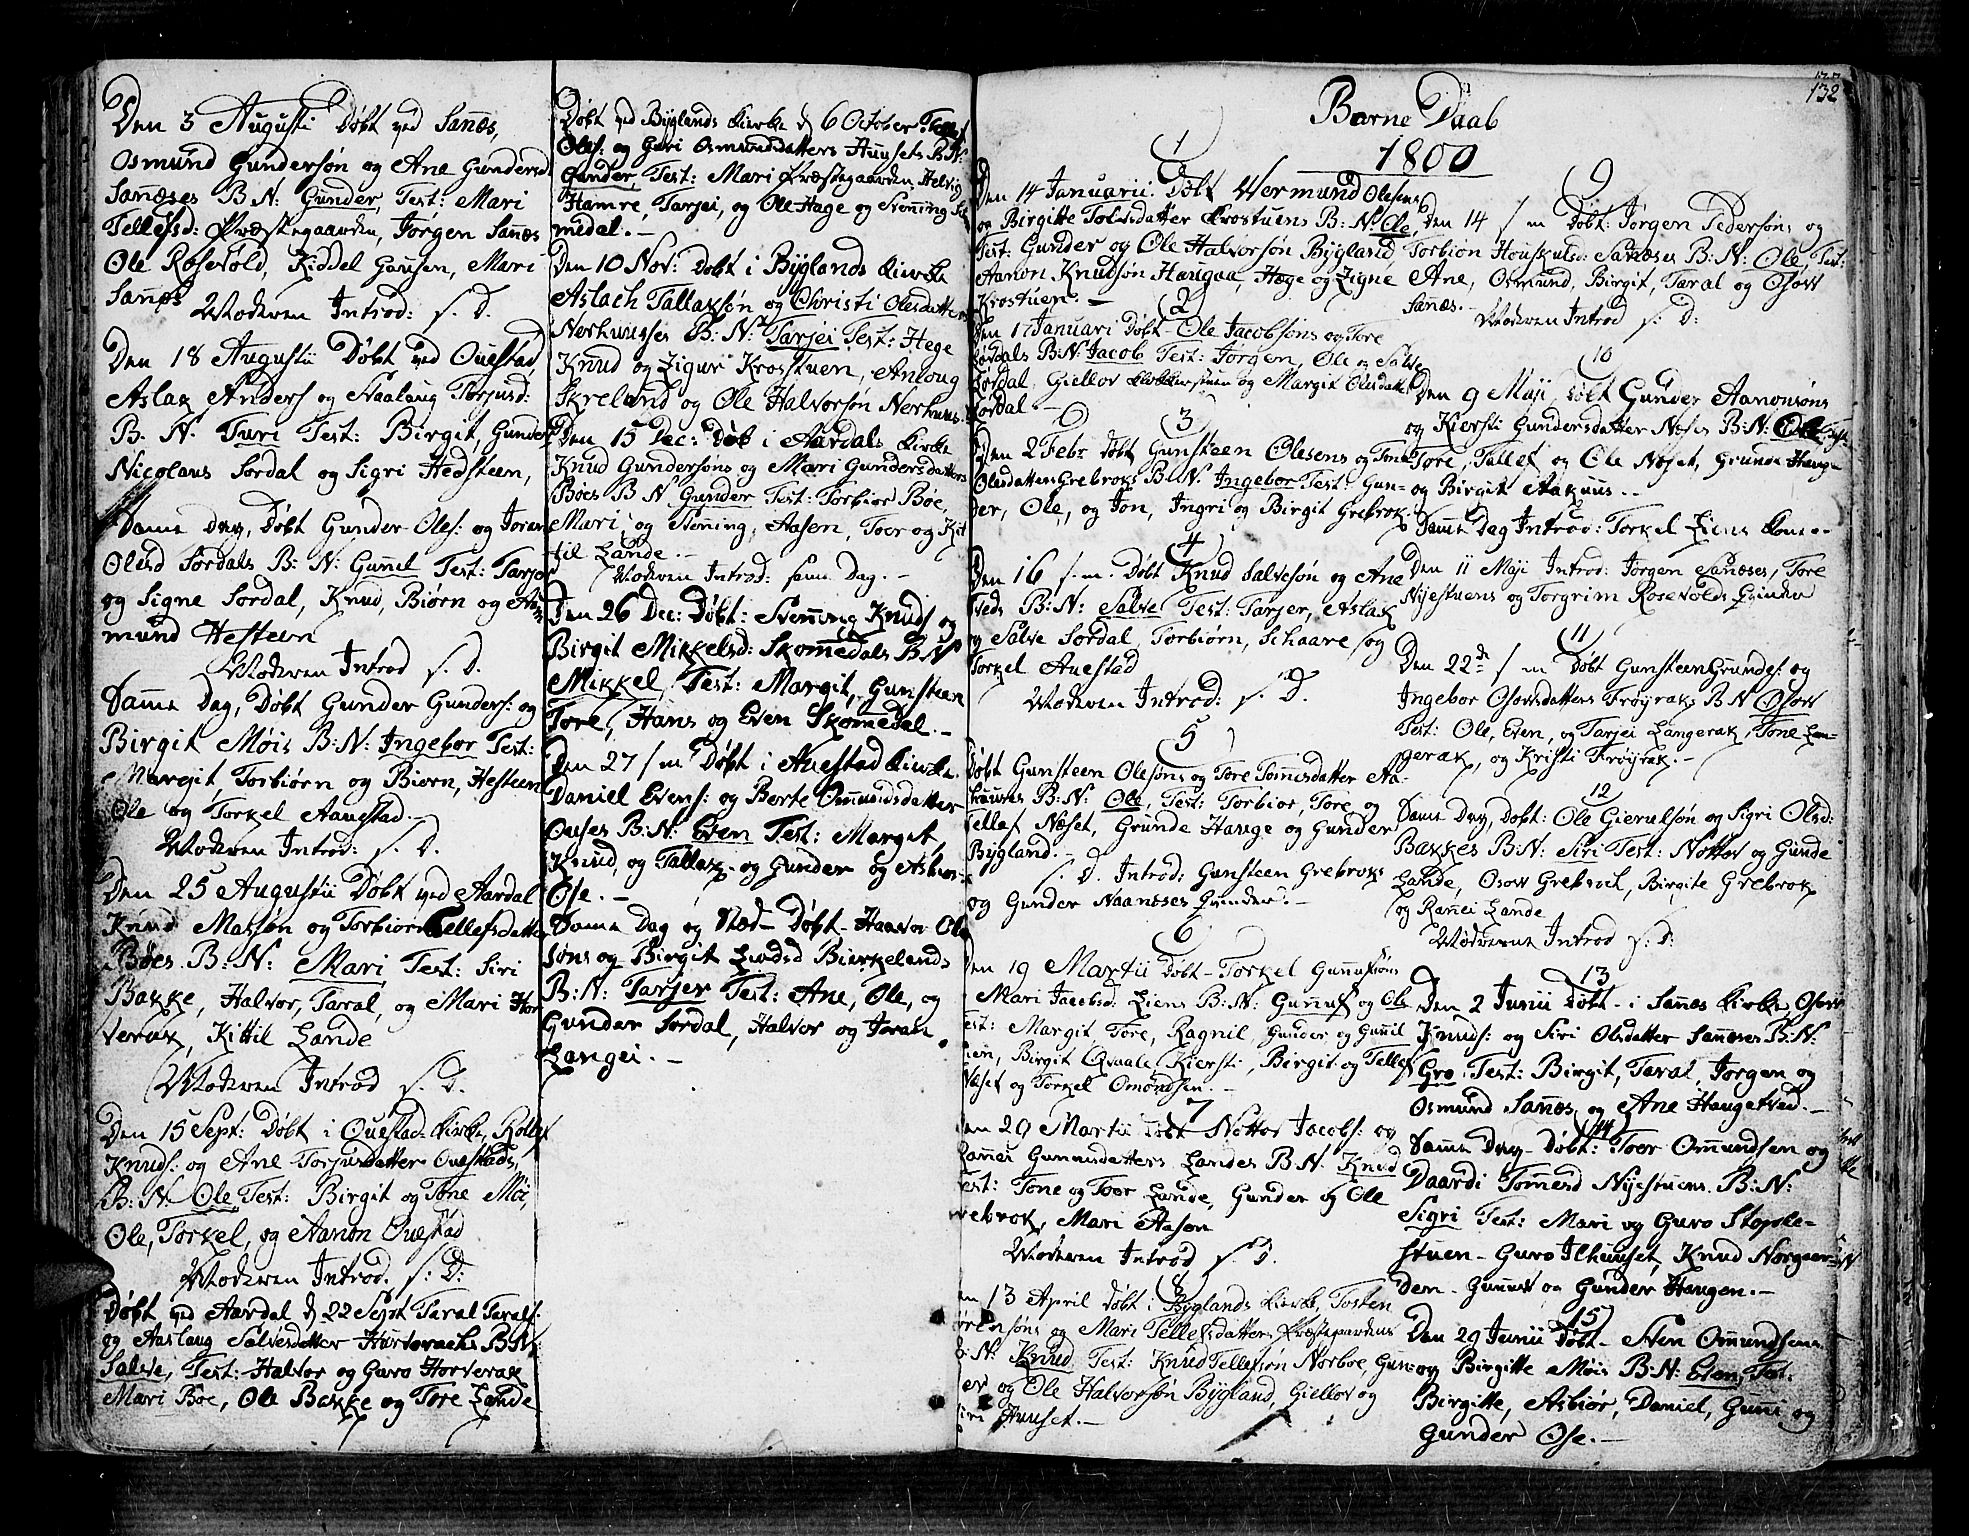 Den 3 Augusti Døbt ved Sañes,
Osmund Gundersøn og Ane Gundersd
Sañeses B:N: Gunder, Test: Mari
Tellefsd: Præstegaarden, Jørgen Sañes
Ole Rosevold, Kiddel Gausen, Mari
Sañes
Moderen Introd: s. D.
Den 18 Augustii Døbt ved Ouestad,
Aslak Anders og Naalaug Torjusd:
B. N. Turi Test: Birgit, Gunder
Nicolaus Sordal og Sigri Hedsteen,
Same Dag, Døbt Gunder Oles: og Joran
Olesd Sordals B: N: Gunil Test: Tarjer
og Signe Sordal, Knud, Biørn og Aa
mund Hesteen
Moderen Introd s. D.
Same Dag, Døbt Gunder Gunders: og
Birgit Møis B:N: Ingebor Test:
Margit, Torbiørn og Biorn, Hesteen
Ole og Torkel Aauestad.
Moderen Introd: s. D.
Den 25 Augustii Døbt ved Aardal
Knud Massøn og Torbiør Tellefsdatter
Bøes B:N: Mari, Test: Siri
Bakke, Halvor, Taral, og Mari Hor
verak, Kittil Lande
Moderen Introd s. D.
Den 15 Sept: Døbt i Ouestad Kirke, Rollef
Knuds: og Ane Torjusdatter Ouestads,
B: N. Ole Test: Birgit og Tone Møi,
Ole, Torkel, og Aanon Ouestad
Moderen Introd. s: D:
Døbt ved Aardal d 22 Sept Taral Taralf:
og Aaslaug Salvesdatter Horveraks B:N:
Salve, Test: Halvor og Guro Horverak
Mari Boe, Ole Bakke og Tore Lande
Døbt ved Byglands Kirke d 6 October
Oles: og Guri Osmundsdatters Huusets B:N:
Gunder, Test: Mari Præstegaarden, Helvig
Hamre, Tarjei, og Ole Hage og Sveñing
medal. -
Den 10 Nov: Døbt i Byglands Kirke
Aslach Tallaksøn og Christi Olesdatters
Nerhuuses B: N: Tarjei Test: Hege
Knud og Ligur Krosstuen, Anloug
Skreland og Ole Halvorsøn Nerhuus.
Den 15 Dec: Døb i Aardals Kirke
Knud Gundersøns og Mari Gundersdatters
Bøes B N Gunder Test: Torbior Boe,
Mari, og Sveñing, Aasen, Toer og Kit
til Lande. -
Moderen Introd: sam Dag. -
Den 26 Dec: Døbt: Sveñing Knuds og
Birgit Mikkelsd: Skomedals B:N:
Mikkel, Test: Margit, Gunsteen
Tore, Hans og Even Skomedal. -
Den 27 s m Døbt i Auestad Kirke
Daniel Evens: og Berte Omundsdatter
Ouses B:N: Even Test: Margit,
Knud, og Tallak og Gunder og Asbior
Ose. -
Same Dag og Sted Døbt Haavor Ole
søns og Birgit Bierkelands
B:N: Tarjer Test: Ane, Ole, og
Gunder Sordal, Halvor og Joran
Langei. -
132
Børne Daab
1800
1
Den 14 Januarii: Døbt Vermund Olesens
og Birgitte Tolvsdatter Krostuens B: N: Ole
Test: Gunder og Ole Halvorsøn Bygland
Aanon Knudsøn Haugaa, Hege og Signe
Krostuen. -
2
Den 1 Januari Døbt Ole Jacobsøns og Tore
Sordals B:N: Jacob Test: Jørgen, Ole og Salve
Sordal, Giellov Klokkerstuen og Margit Olesdatter
Sordal. -
3
Den 2 Febr: døbt Gunsteen Olesens og Tone
Olesdatter Grebroks B: N: Ingebor Test: Gun-
der, Ole, og Jon, Ingri og Birgit Grebrok.
4
Den 16 s. m. Døbt Knud Salvesøn og Ane
B: N: Salve Test: Tarjer, Aslak
og Salve Sordal, Torbiørn, Schaare, og
Torkel Auestad
Moderen Introd: s. D.
5
Døbt Gunsteen Olesøns og Tore Tomisdatter Aa-
kuuses B: N: Ole, Test: Torbior, Tore, og
Tellef Næset, Grunde Hauge og Gunder
Bygland. -
s. D. Introd: Gunsteen Grebroks
og Gunder Naaneses Qvinder. -
6
Den 19 Martii Døbt Torkel Guñufsøns
Mari Jacobsd: Liens B:N: Guñuf og Ole
Test: Margit, Tore, Ragnil, Gunder og Guñil
Lien, Birgit Qvaale, Kiersti, Birgit og Tellef
Næset og Torkel Omondsen. -
7
Den 29 Martii Døbt Nottov Jacobs: og
Rannei Guñusdatters Landes B: N. Knud
Test: Tone og Toer Lande, Gunder og Ole
Grebrok, Mari Aasen
Moderen Introd s. D.
8
Den 13 April Døbt i Byglands Kirke, Tosten
søns og Mari Tellefsdatters Præstegaardens
B: N: Knud Test: Knud Tellefsøn Norboe, Gun-
der og Ole Halvorsøn Bygland, Giellov og
Siri Huuset. -
9
Den 14 s m Døbt: Jørgen Pedersøns og
Torbion Houskulsd: Sañeses B: N: Ole, Test:
Ane, Osmund, Birgit, Taral og Osow
Sañes.
Moderen Introd s. D:
10
Den 9 Maji, Døbt Gunder Aanonsøns
og Kiersti Gundersdatter Neses B:N:
Tore, Tallef og Ole Næset, Grunde Hauge
og Birgit Aakuus. -
Same Dag Introd: Torkel Liens Kone -
Den 11 Maji Introd: Jorgen Sañeses, Tore
Nyestuens og Torgrim Rosevolds Qvinder
11
Den 22de s m Døbt Gunsteen Grundes: og
Ingebor Osowsdatters Frøyraks B N Osow
Test: Ole, Even, og Tarjei Langerak, Tone Lan-
gerak, og Kristi Frøyrak. -
12
Same Dag, Døbt: Ole Gierulsøn og Sigri Olsd:
Bakkes B:N: Siri Test: Nottov og Gunde
Lande, Osow Grebroch, Birgite Grebrok
og Rañei Lande
Moderene Introd s. D:
13
Den 2 Junii Døbt i Sañes Kirke Osow
Knuds: og Siri Olsdatter Sañeses B: N:
Gro. Test: Birgit, Taral, Jorgen og
Osmund Sañes, og Ane Haugetved. -
14
Same Dag Døbt: Toer Omundsen og
Daardi Tomesd Nyestuens. B: N:
Sigri Test: Mari og Guro Stople-
stuen Guro Ilhuuset, Knud Norgaar-
den Guñuf og Gunder Haugen. -
15
Den 29 Junii Døbt Sven Omundsens
og Birgitte Møis B:N: Even, Test:
Birgitte, Asbiør, Daniel, Guñi og
Gunder Ose. -